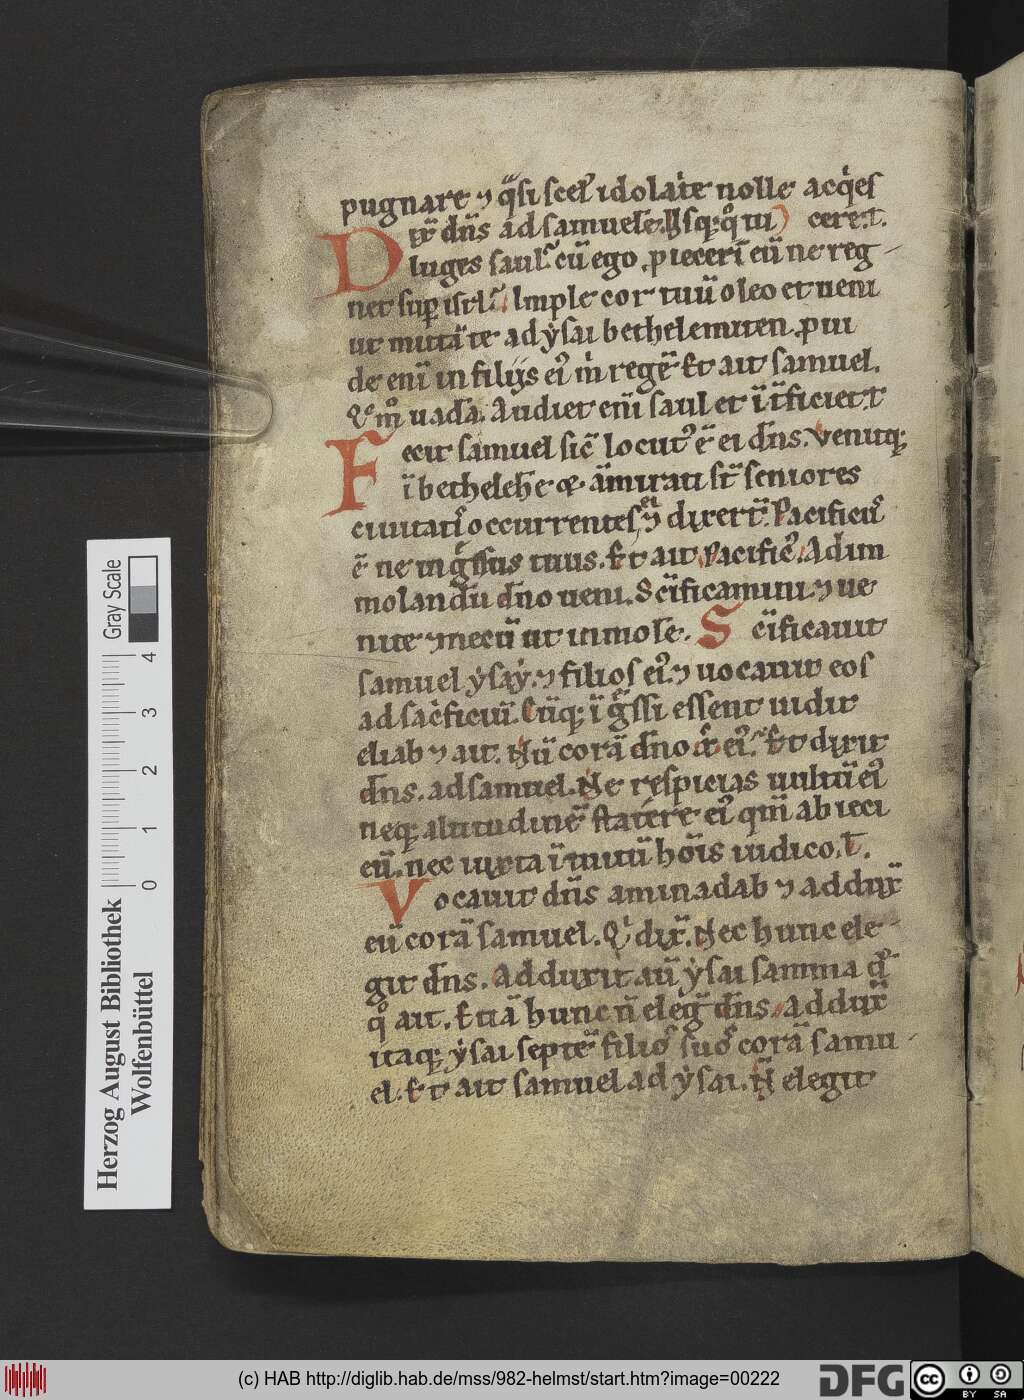 pugnare ⁊ qͣsi scel' idolat̄e nolle acqͥes
Dix̄ dn̄s ad samuelē. Vsq; qͦ tu cere. t.
luges saul'. cū ego p̱iecerī eū ne reg-
net sup̱ isrl'. Imple cor tuū oleo et ueni
ut mittā te ad ẏsai bethelemiten. p̱ui
de enī in filijs ei' m̍ regē. Et ait samuel.
Qͦm̊ uadā. Audiet enī saul et īt̄ficiet. t
Fecit samuel sic̄ locut' ē ei dn̄s. Venitq;
ī bethelehē ⁊. ām̄irati st̄ seniores
ciuitatis occurrentes ei ⁊ dixert̄. Pacificus
ē ne ingͣssus tuus. Et ait. Pacific'. Ad im
molandū dn̄o ueni. Sc̄ificamini ⁊ ue
nite ⁊ mecū ut inmolē. Sc̄ificauit
samuel ẏsaẏ. ⁊ filios ei'. ⁊ uocauit eos
ad sacͥficiū. Cūq; īgͣssi essent uidit
eliab ⁊ ait. Nū corā dn̄o ⁊ ei'. Et dixit
dn̄s. ad samuel. Ne respicias uultū ei'
neq; altitudinē statúre ei' qm̄ abieci
eū. nec iuxta ītuitū hoīs iudico. t.
Vocauit dn̄s aminadab ⁊ addux̄
eū corā samuel. Qͥ dix̄. Nec hunc ele-
git dn̄s. Adduxit aū ẏsai samma d̄
qͦ ait. Etiā hunc n̄ elegͭ dn̄s. Addux̄
itaq; ẏsai septē filiọs suos corā samu-
el. Et ait samuel ad ẏsai. N̄ elegit
Herzog August Bibliothek
Wolfenbüttel
Gray Scale
0 1 2 3 4
(c) HAB http://diglib.hab.de/mss/982-helmst/start.htm?image=00222
DFG
cc BY SA